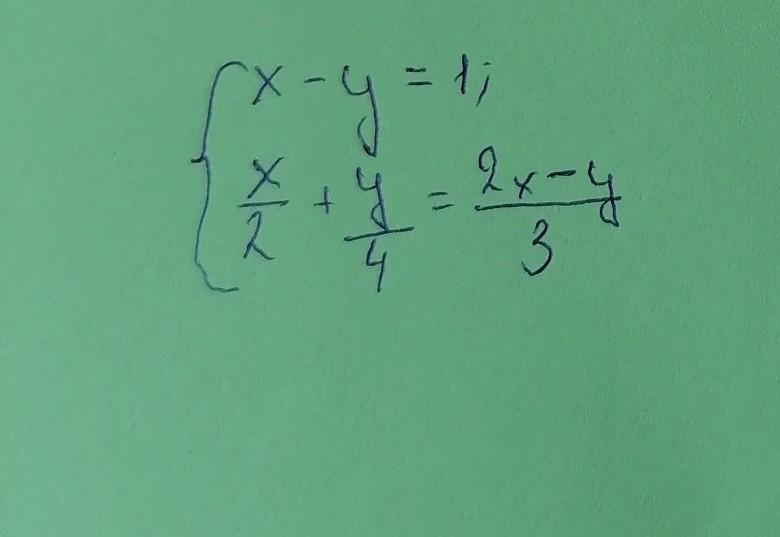 x - y = 1;
x/2 + y/4 = (2x - y)/3